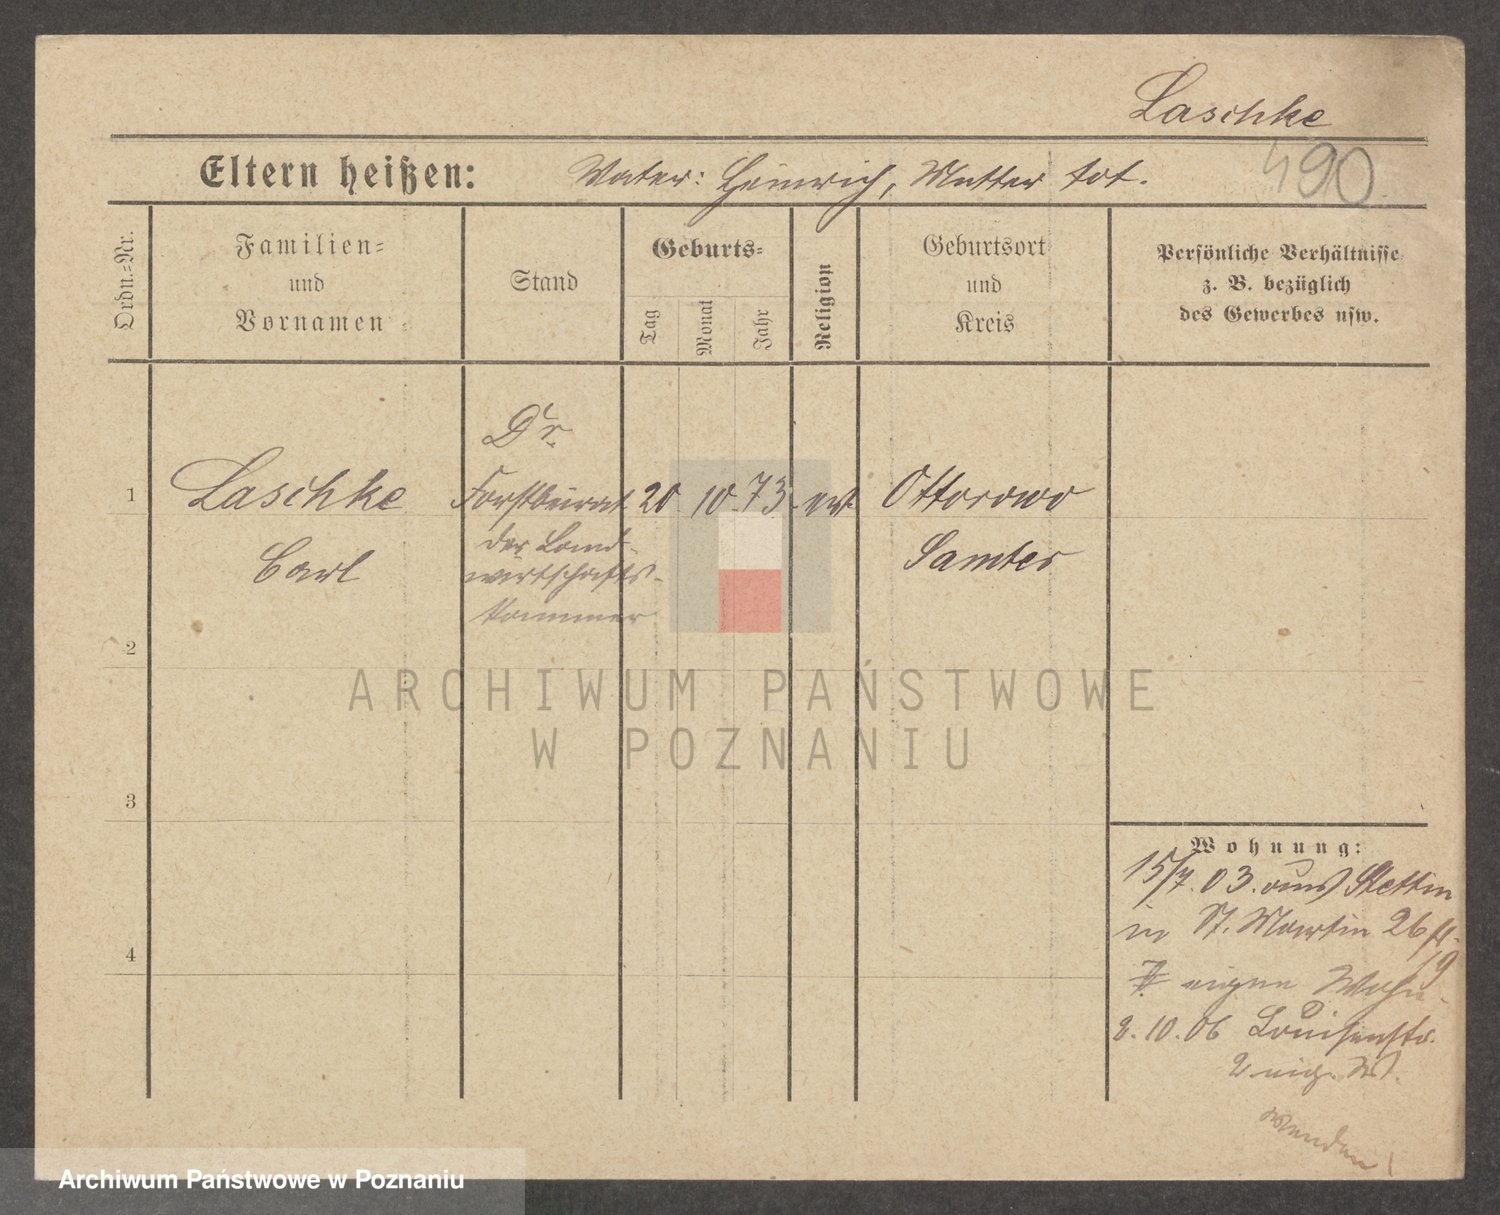 Laschke
490
Eltern heißen: Vater: Heinrich, Mutter tot.
Ordn.-Nr.
Familien-
und
Vornamen
Stand
Geburts-
Tag
Monat
Jahr
Religion
Geburtsort
und
Kreis
Persönliche Verhältnisse
z. B. bezüglich
des Gewerbes usw.
Dr.
1 Laschke Forstbeirat 20. 10. 73. ev. Ottorowo
der Land-
Carl wirtschafts- Samter
kammer
2
ARCHIWUM PAŃSTWOWE
W POZNANIU
3
4
Wohnung:
15/7. 03. aus Stettin
in St. Martin 26
eigene Wohn.
2. 10. 06 Louisenstr.
2 eig. W.
wenden!
Archiwum Państwowe w Poznaniu